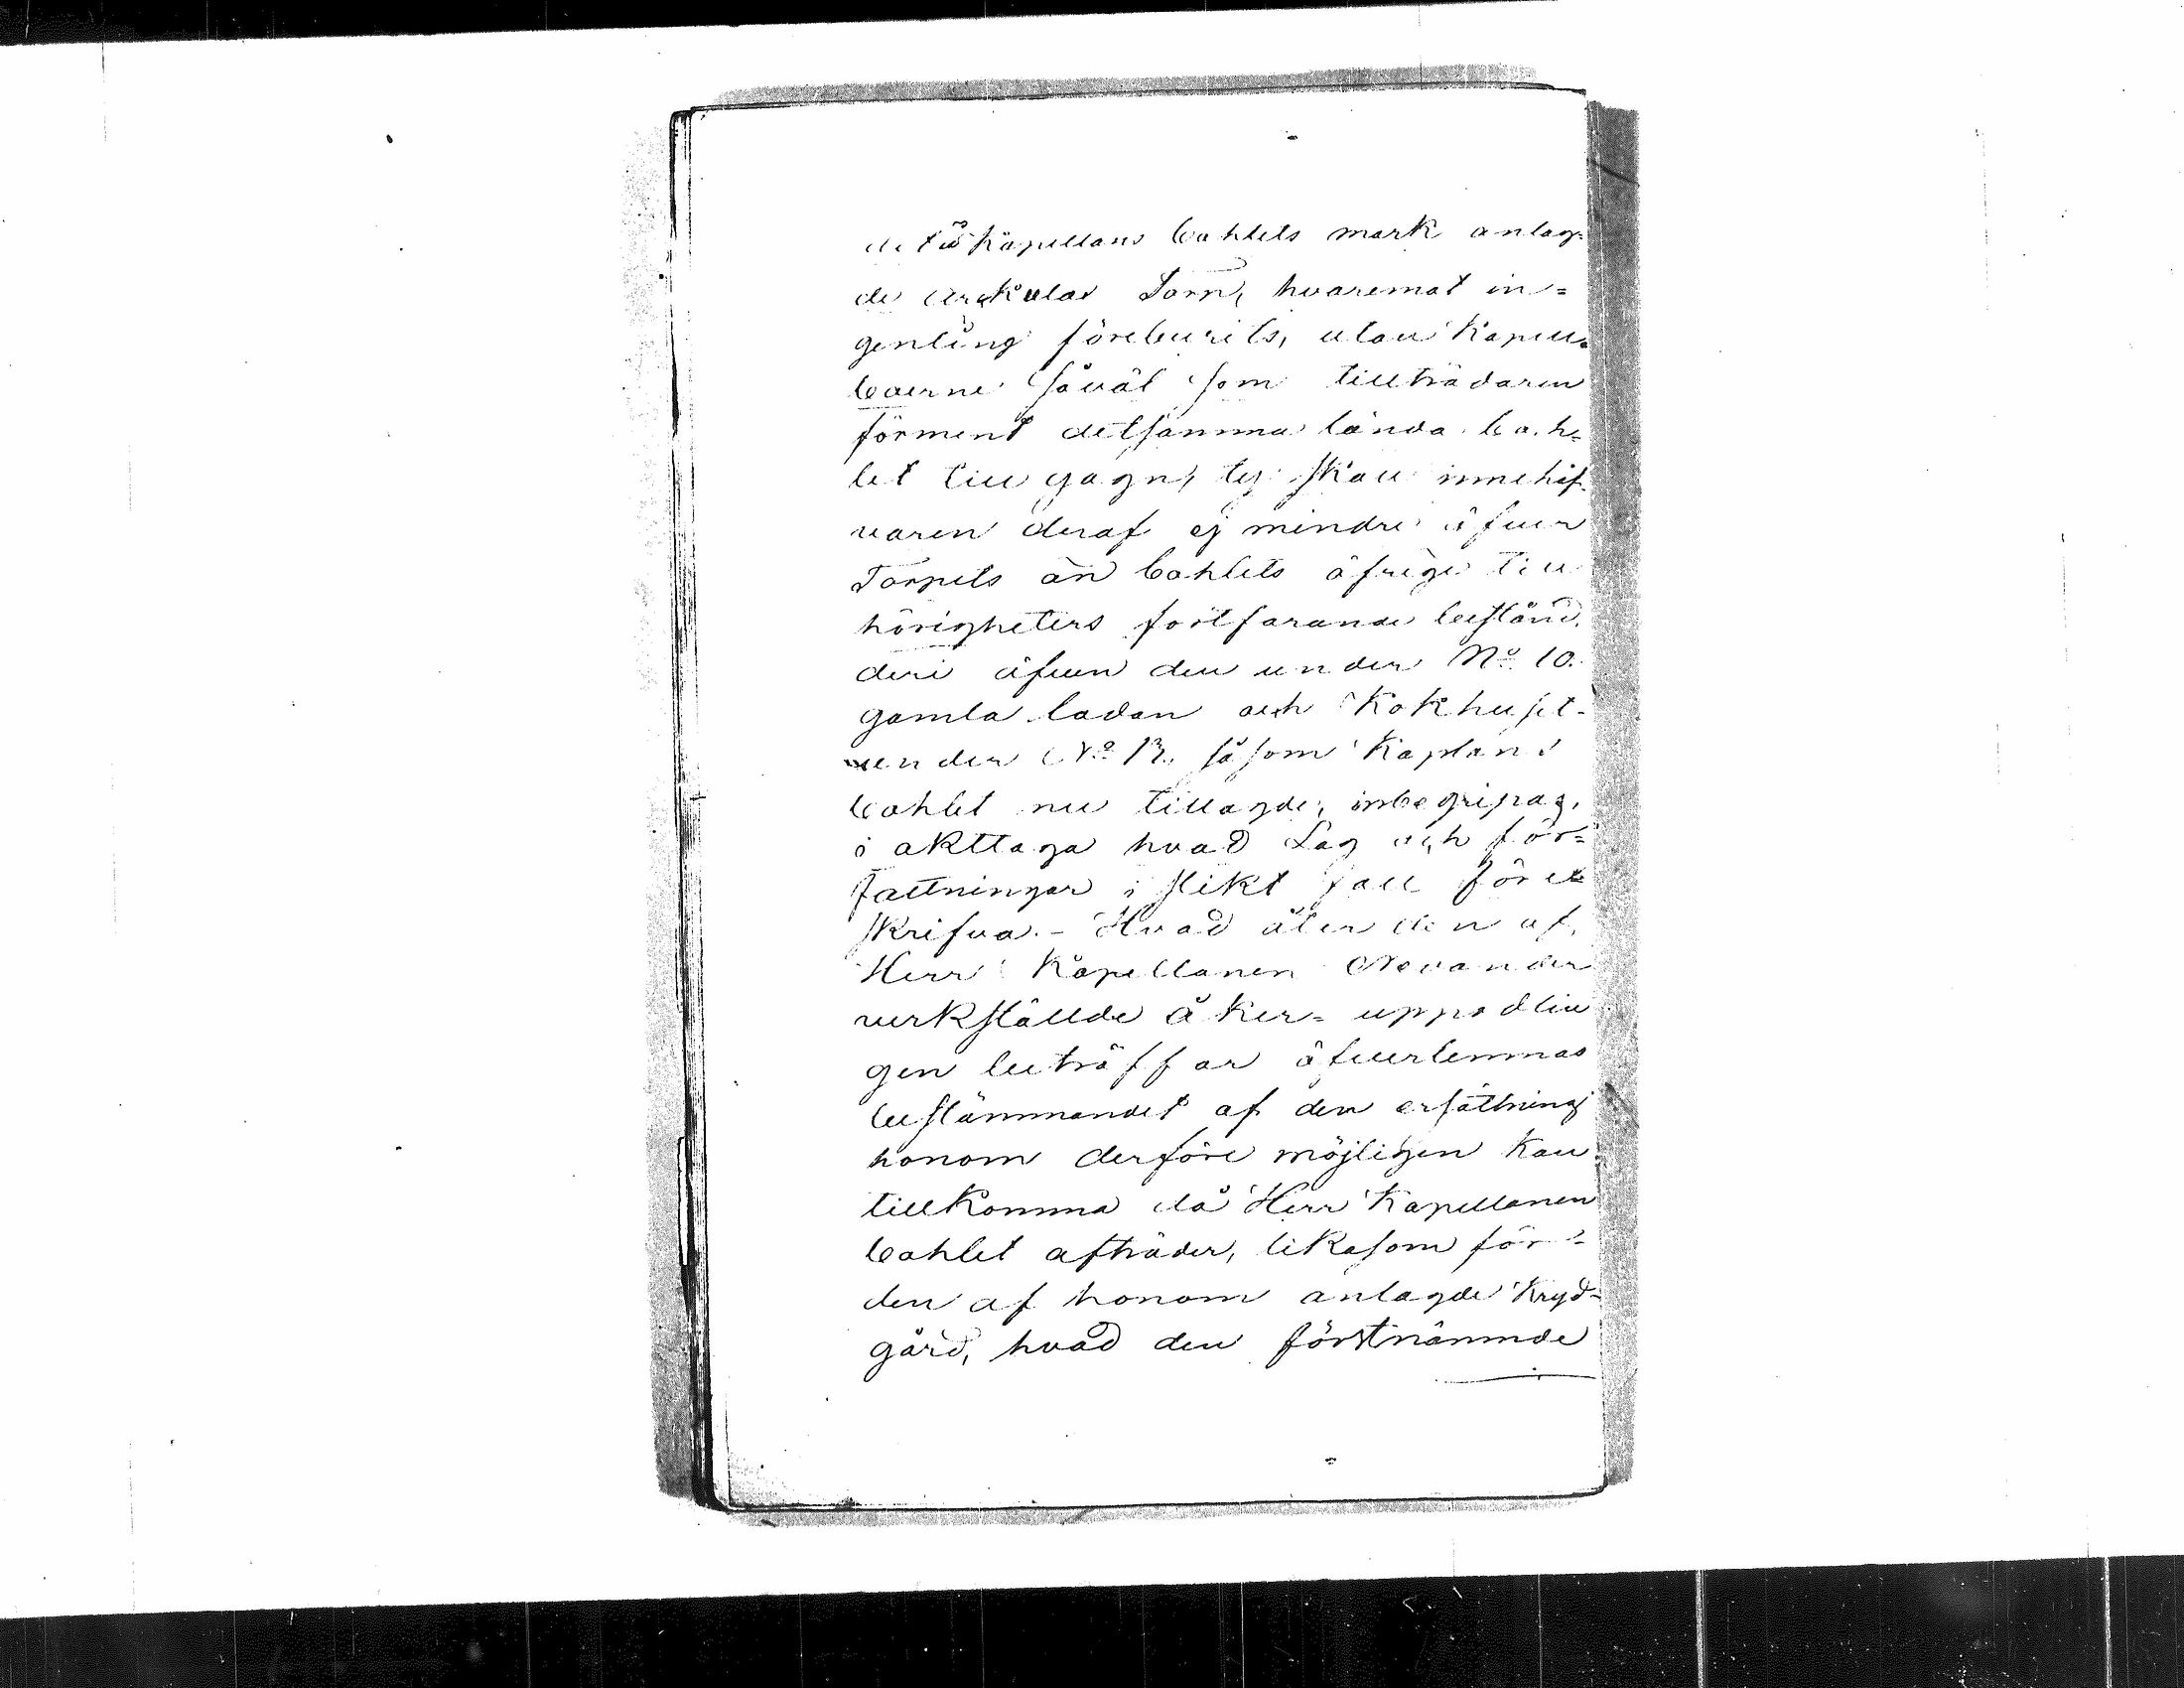 det å Kapellans bohlets mark anlag=
de Torp, hvaremot in=
genting föreburits, utan Kapell=
boerne såväl som tillträdaren
förment detsamma lända boh=
let till gagn, ty skall innehaf=
varen deraf ej mindre öfver
Torpets än bohlets öfrige till
hörigheters fortfarande bestånd,
deri äfven den under No 10.
gamla ladan och Kokhuset
under No 13. såsom Kaplans
bohlet nu tillagde, inbegripas,
i akttaga hvad Lag och för=
fattningar i slikt fall före
skrifva. - Hvad åter den af
Herr Kapellanen Nevander
verkställde åker= uppodlin
gen beträffar öfverlemnas
bestämmandet af den ersättning
honom derföre möjligen kan
tillkomma då Herr Kapellanen
bohlet afträder, likasom för
den af honom anlagde Kryd=
gård, hvad den förstnämnde